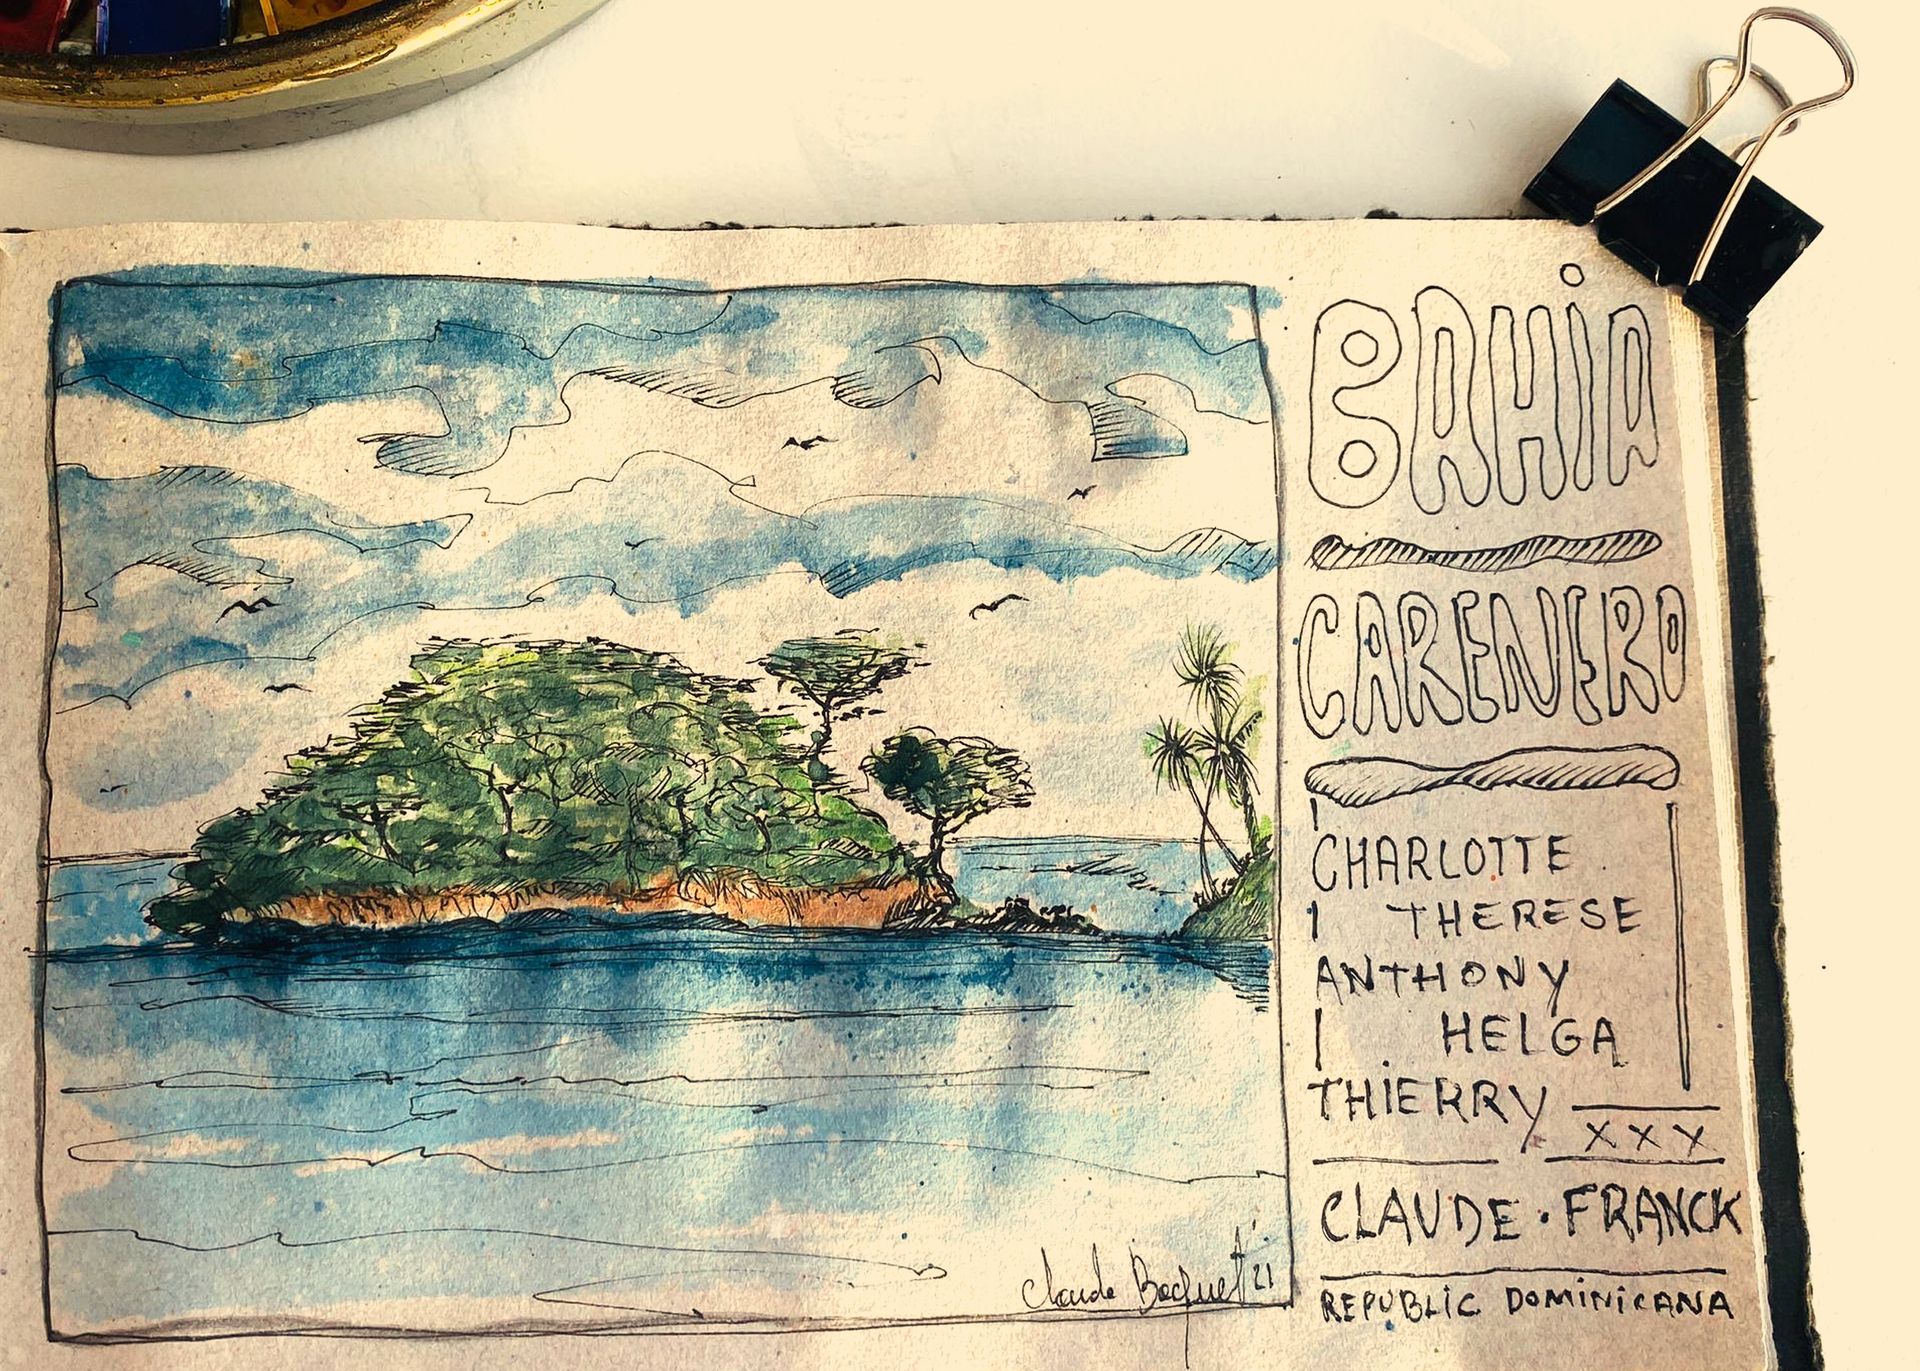 BAHIA
CARENERO
CHARLOTTE
THERESE
ANTHONY
HELGA
THIERRY
XXX
CLAUDE · FRANCK
REPUBLIC DOMINICANA
Claude Bocquet 21